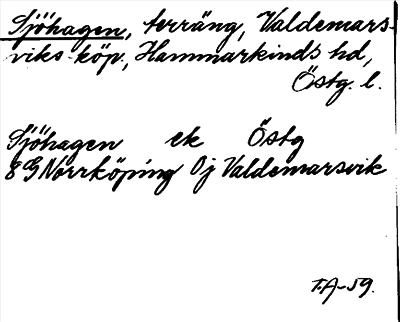 Sjöhagen, terräng, Valdemars-
viks köp., Hammarkinds hd,
Östg. l.
Sjöhagen ek Östg
8G Norrköping 0j Valdemarsvik
T.A-59.